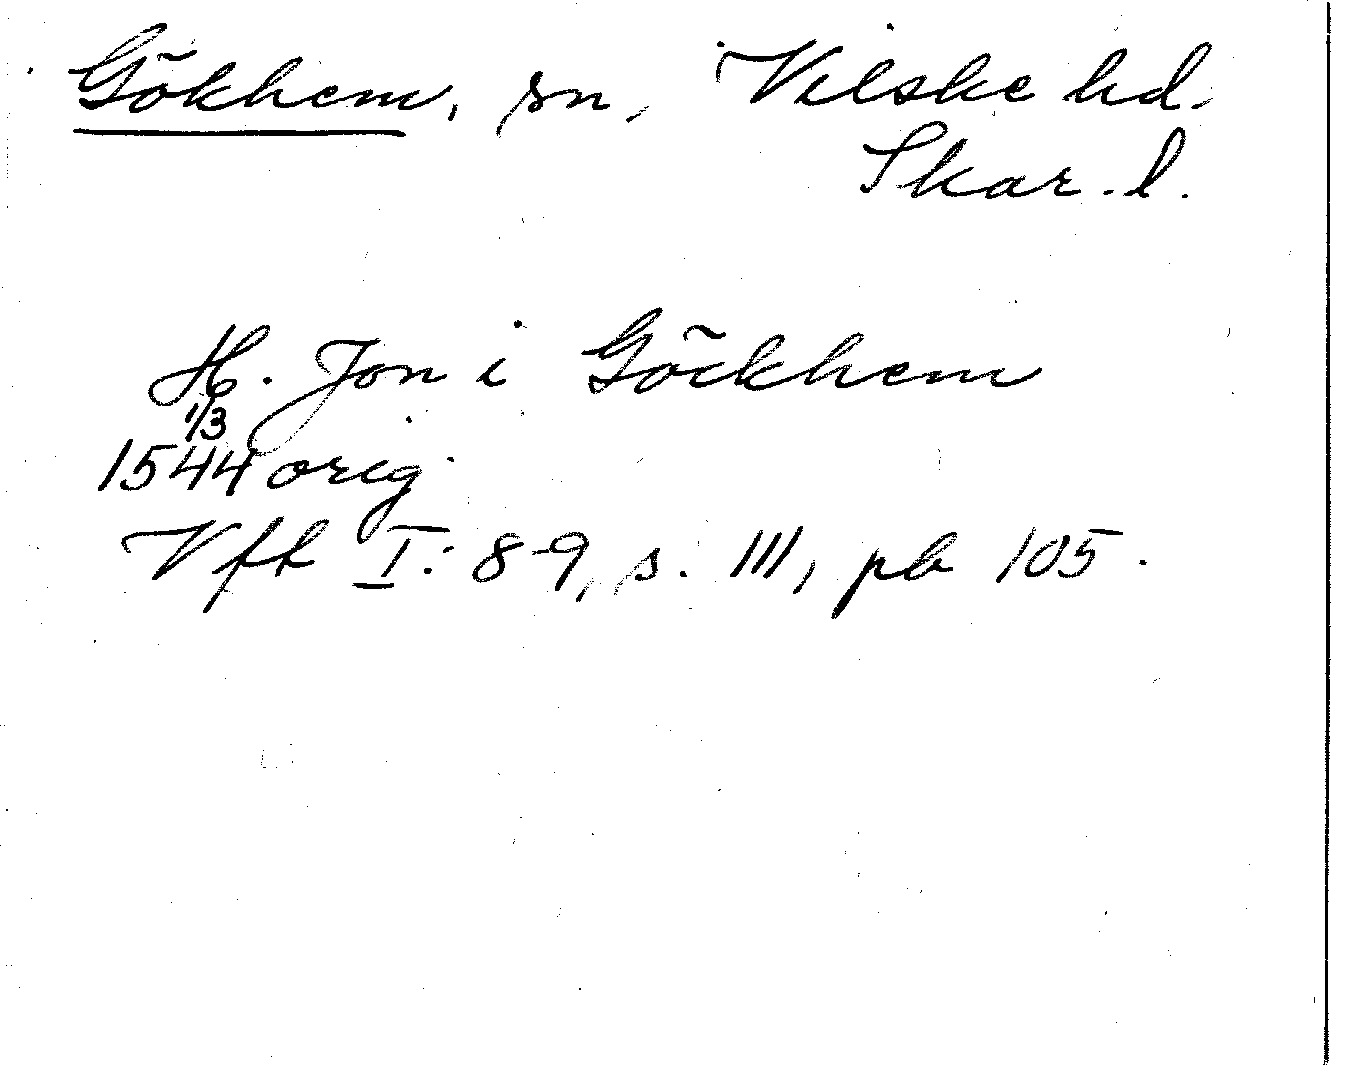 Gökhem, sn, Vilske hd.
Skar. l.
H. Jon i Göckhem
1/3
1544 orig.
Vft I: 8-9, s. 111, pb 105.